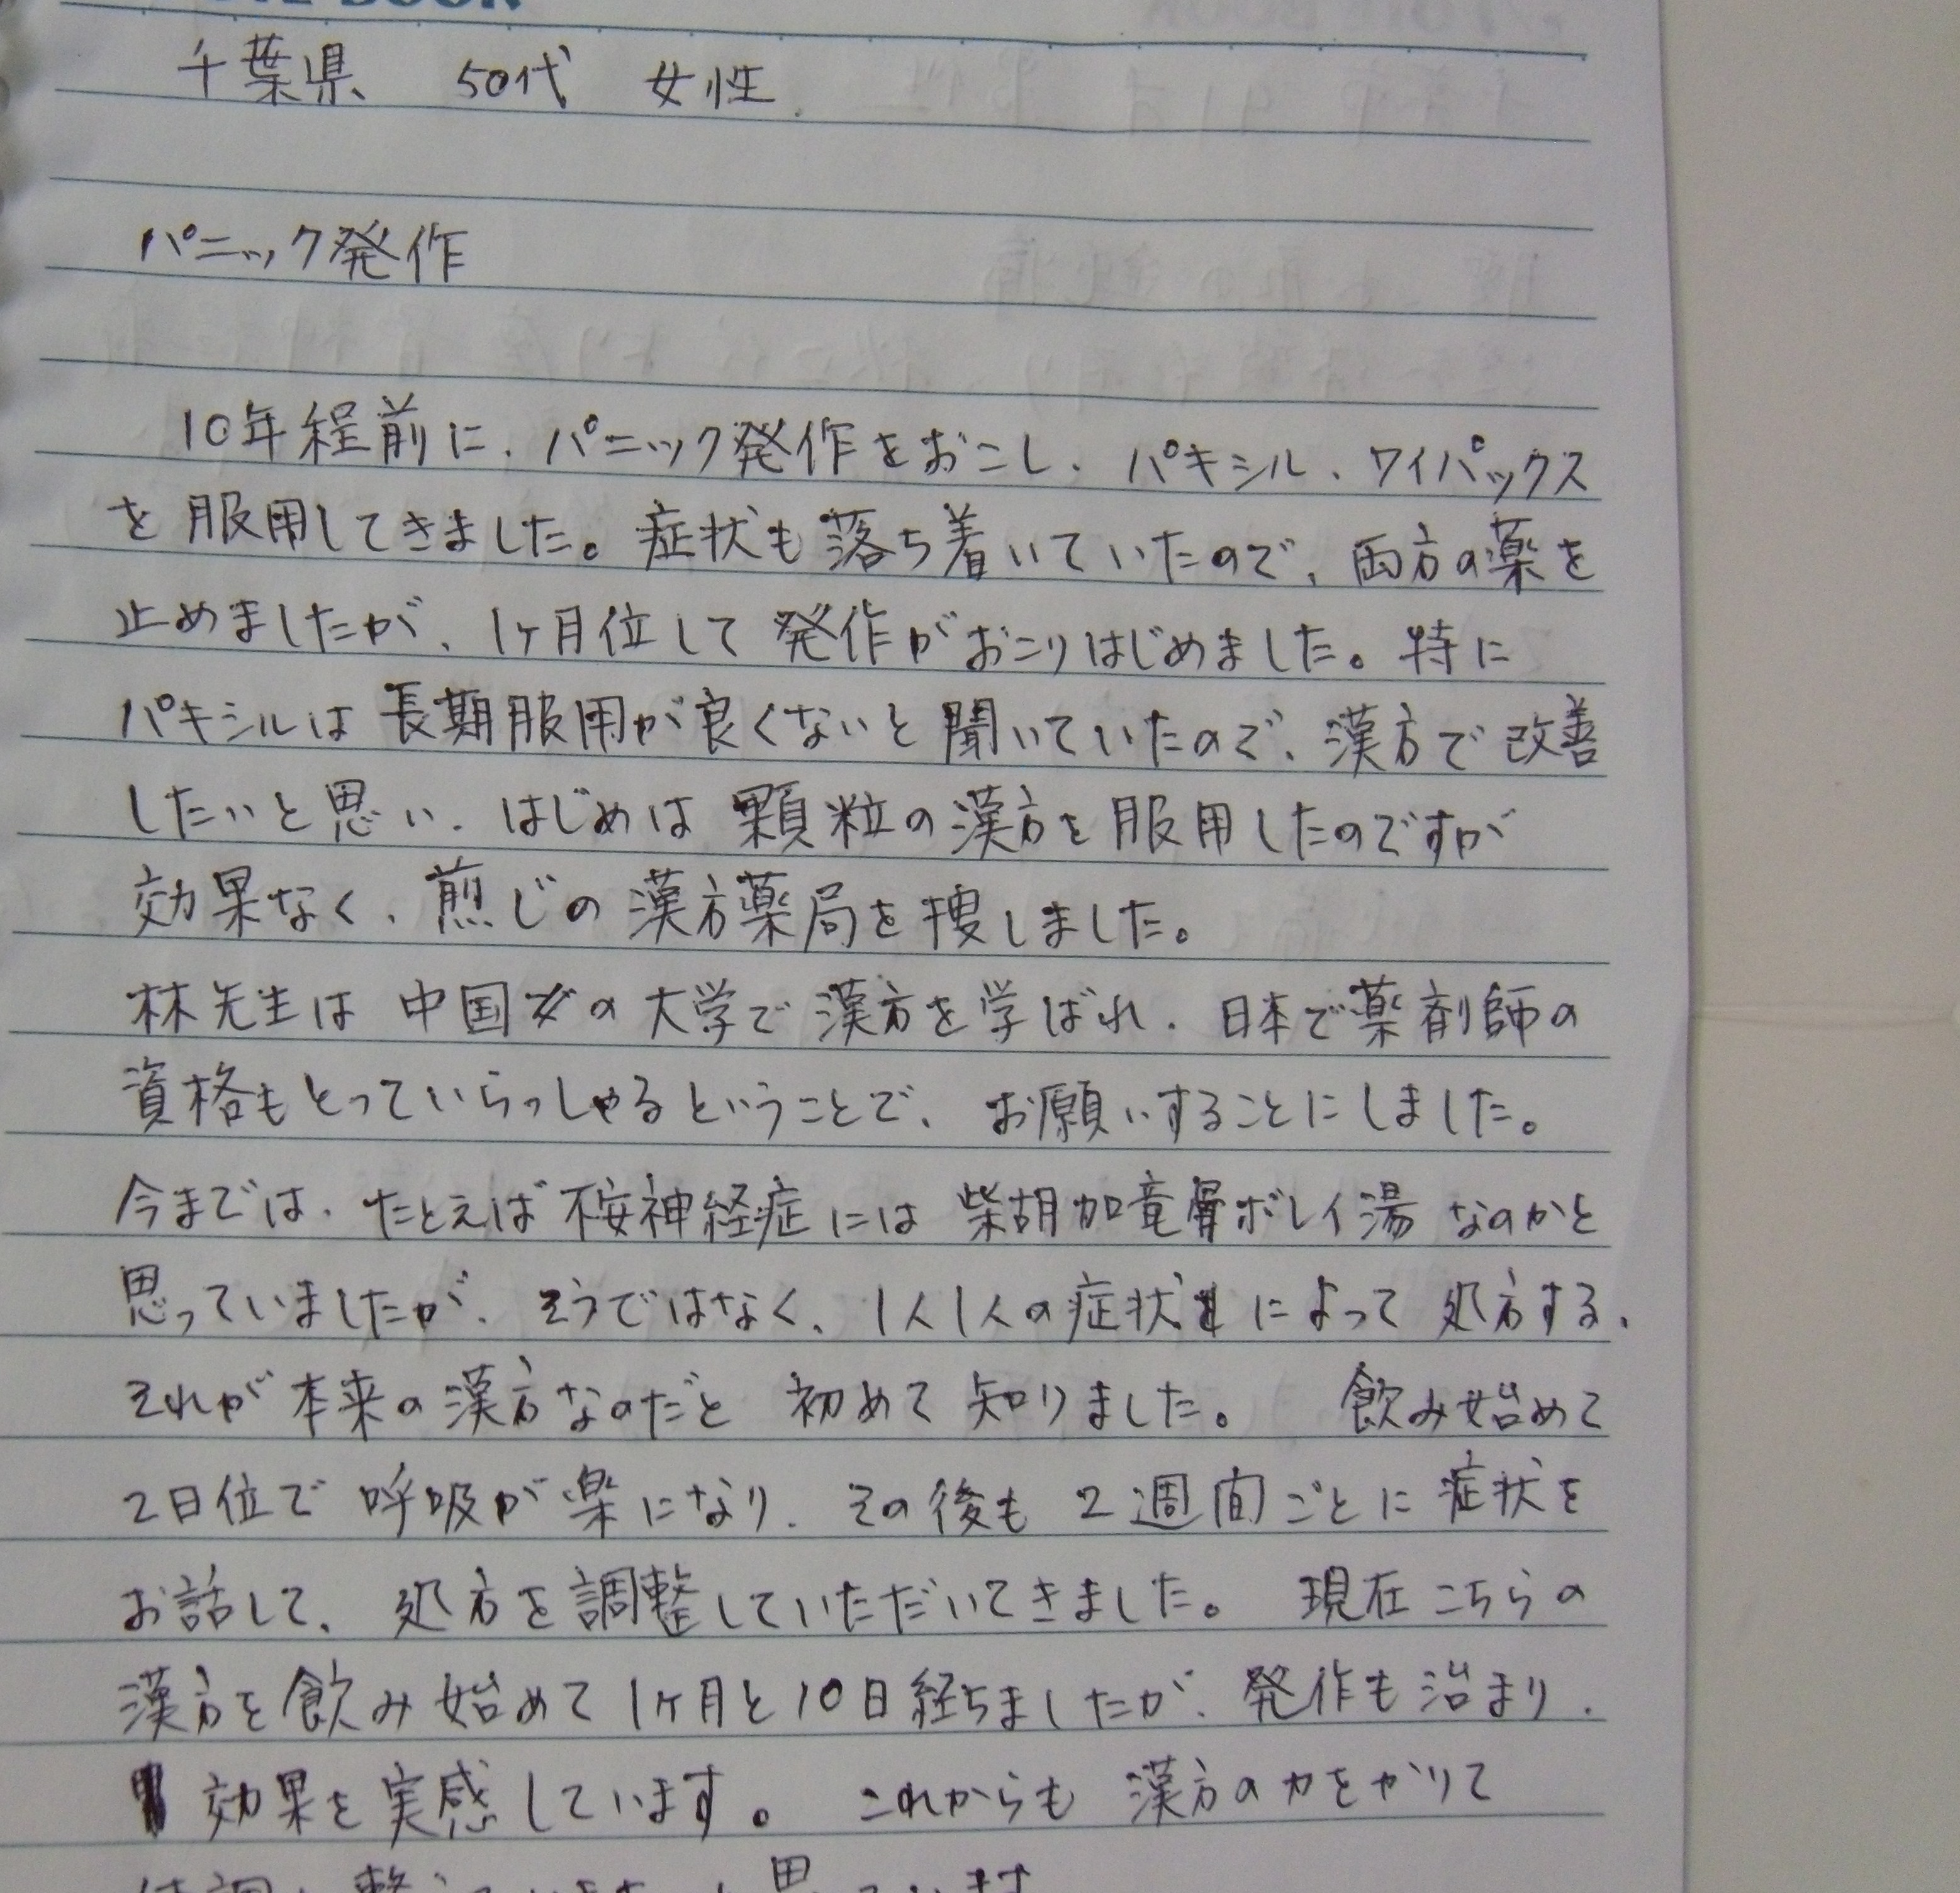 千葉県 50代 女性
パニック発作
10年程前に、パニック発作をおこし、パキシル、ワイパックス
を服用してきました。症状も落ち着いていたので、両方の薬を
止めましたが、1ヶ月位して発作がおこりはじめました。特に
パキシルは長期服用が良くないと聞いていたので、漢方で改善
したいと思い、はじめは顆粒の漢方を服用したのですが
効果なく、煎じの漢方薬局を捜しました。
林先生は中国の大学で漢方を学ばれ、日本で薬剤師の
資格もとっていらっしゃるということで、お願いすることにしました。
今までは、たとえば不安神経症には柴胡加竜骨ボレイ湯なのかと
思っていましたが、そうではなく、1人1人の症状によって処方する、
それが本来の漢方なのだと初めて知りました。 飲み始めて
2日位で呼吸が楽になり、その後も2週間ごとに症状を
お話して、処方を調整していただいてきました。 現在こちらの
漢方を飲み始めて1ヶ月と10日経ちましたが、発作も治まり、
効果を実感しています。 これからも漢方の力をかりて